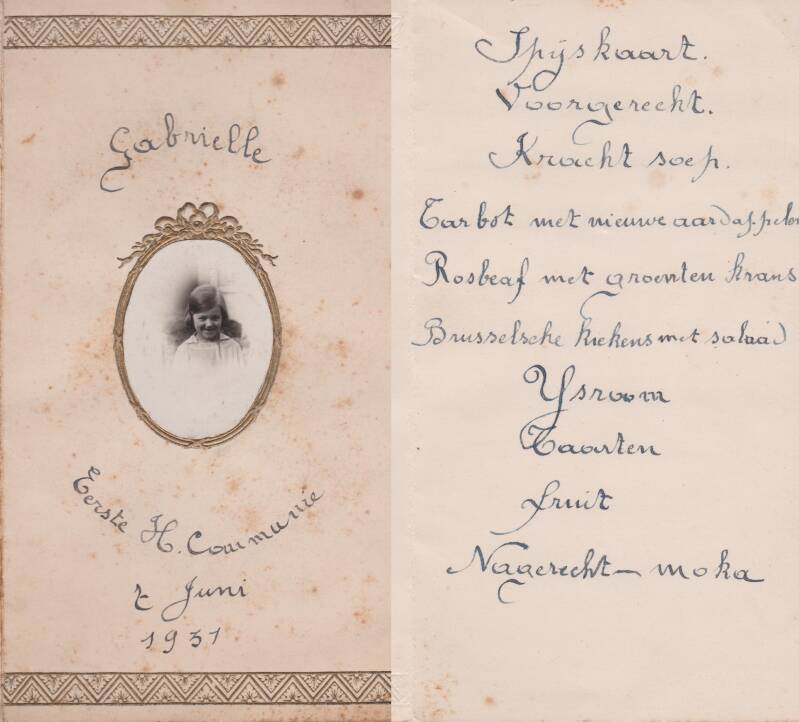 Gabrielle
Eerste H. Communie
7 Juni
1931
Spijskaart.
Voorgerecht.
Kracht soep.
Tarbot met nieuwe aardappelen
Rosbeaf met groenten krans
Brusselsche kiekens met salaad
Ysroom
Taarten
fruit
Nagerecht - moka